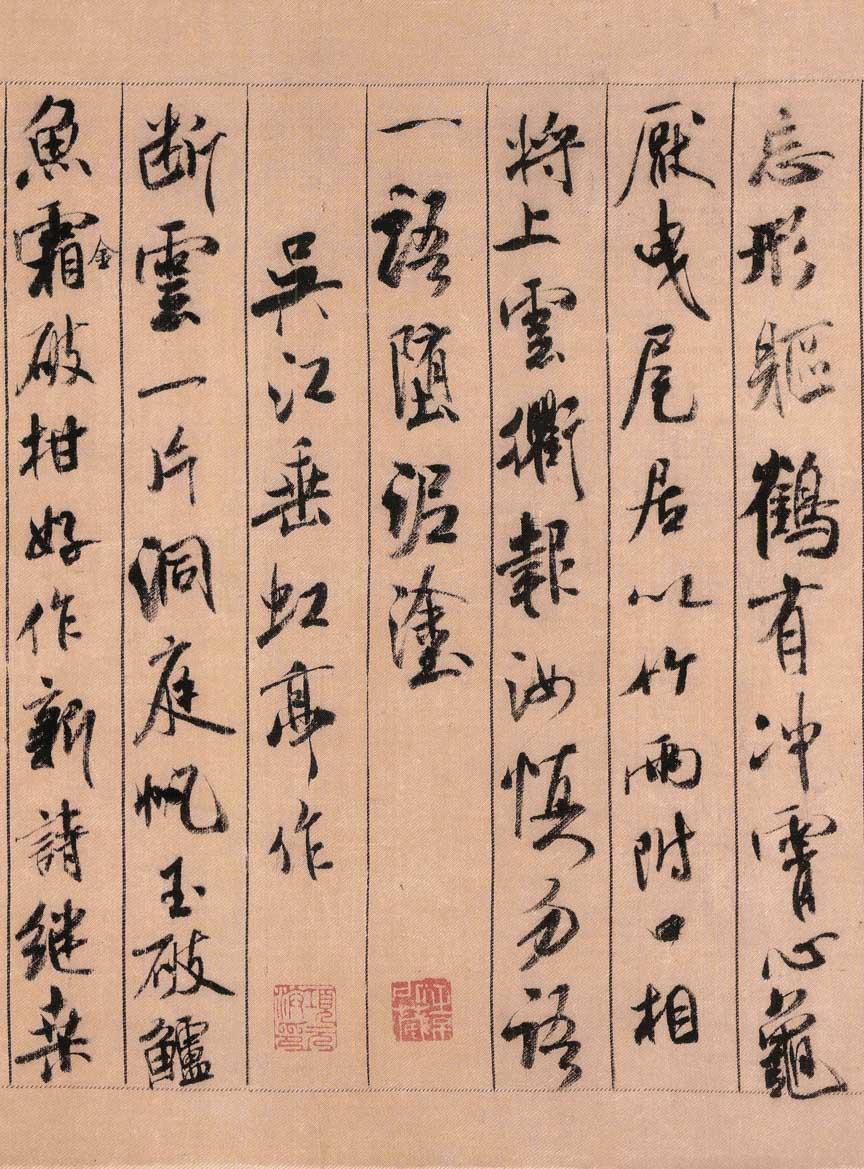 忘形軀鶴有冲霄心龜
厭曳尾居以竹兩附口相
將上雲衢報汝慎勿語
一語墮泥塗
吳江垂虹亭作
断雲一片洞庭帆玉破鱸
魚霜金破柑好作新詩継桒
項元汴印